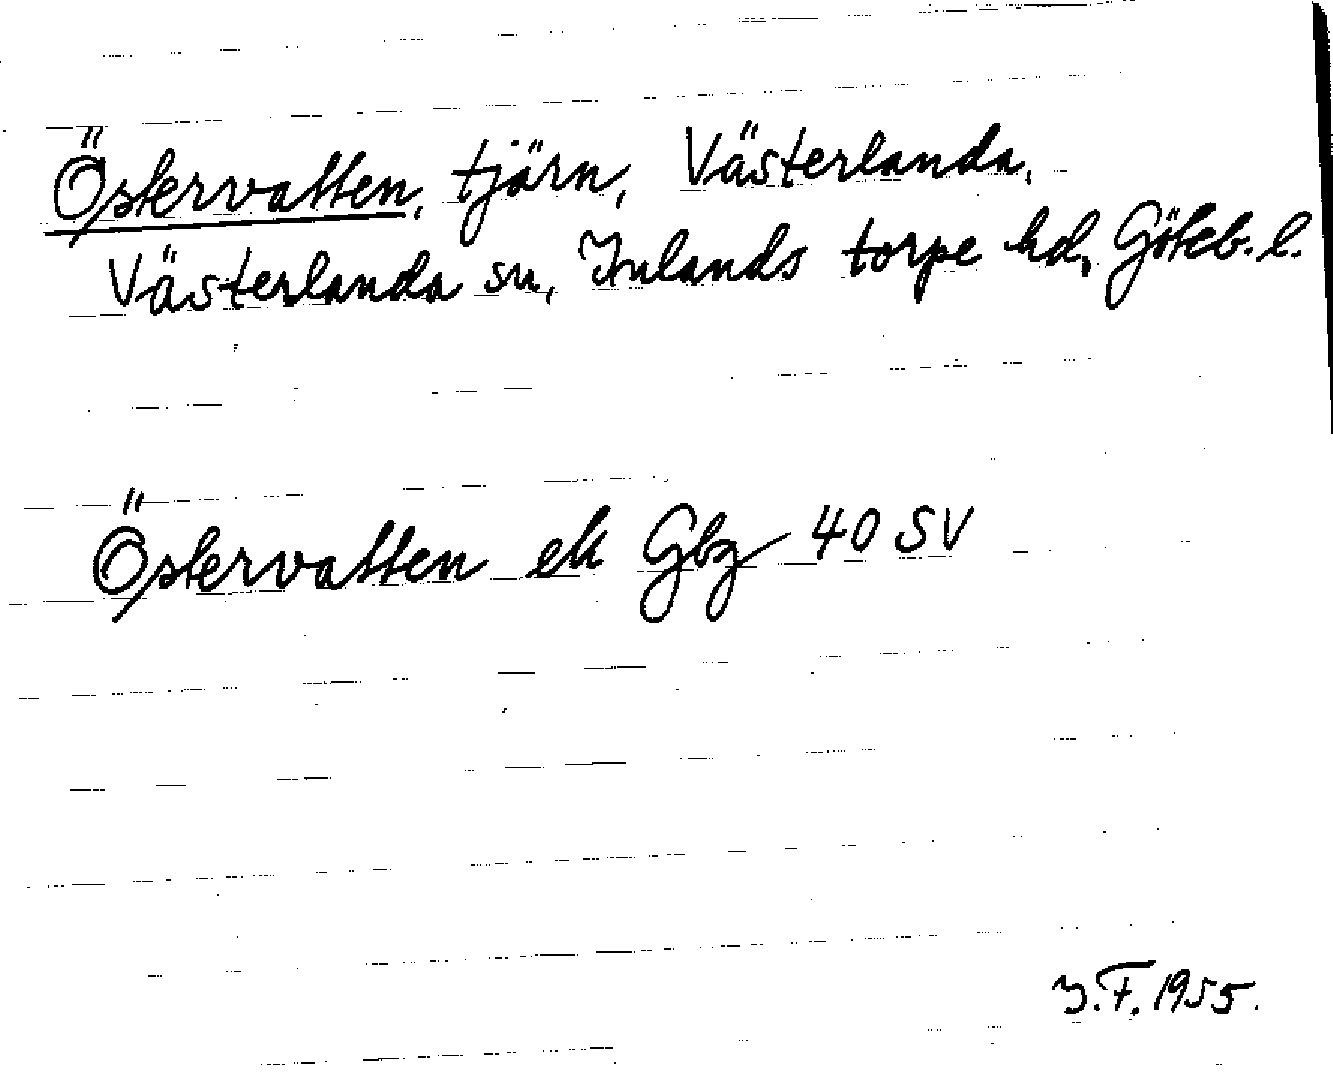 Östervatten, tjärn, Västerlanda,
Västerlanda sn, Inlands torpe hd, Göteb. l.
Östervatten ek Gbg 40 SV
I.F. 1955.